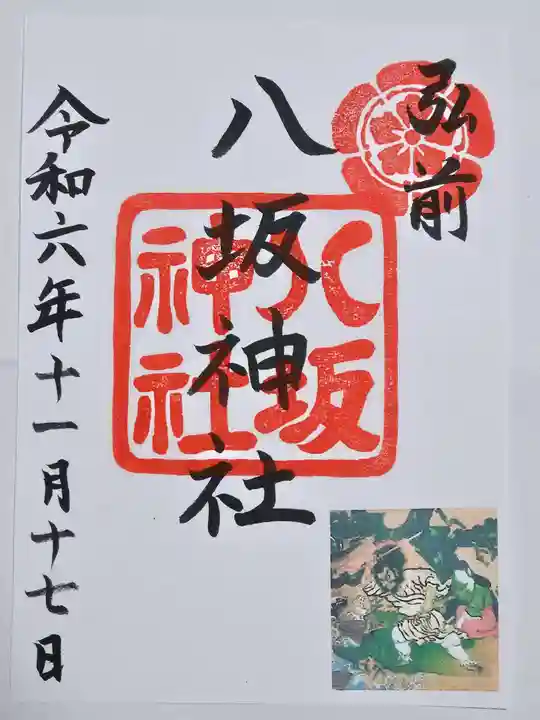 弘前
八坂神社
八坂
神社
令和六年十一月十七日